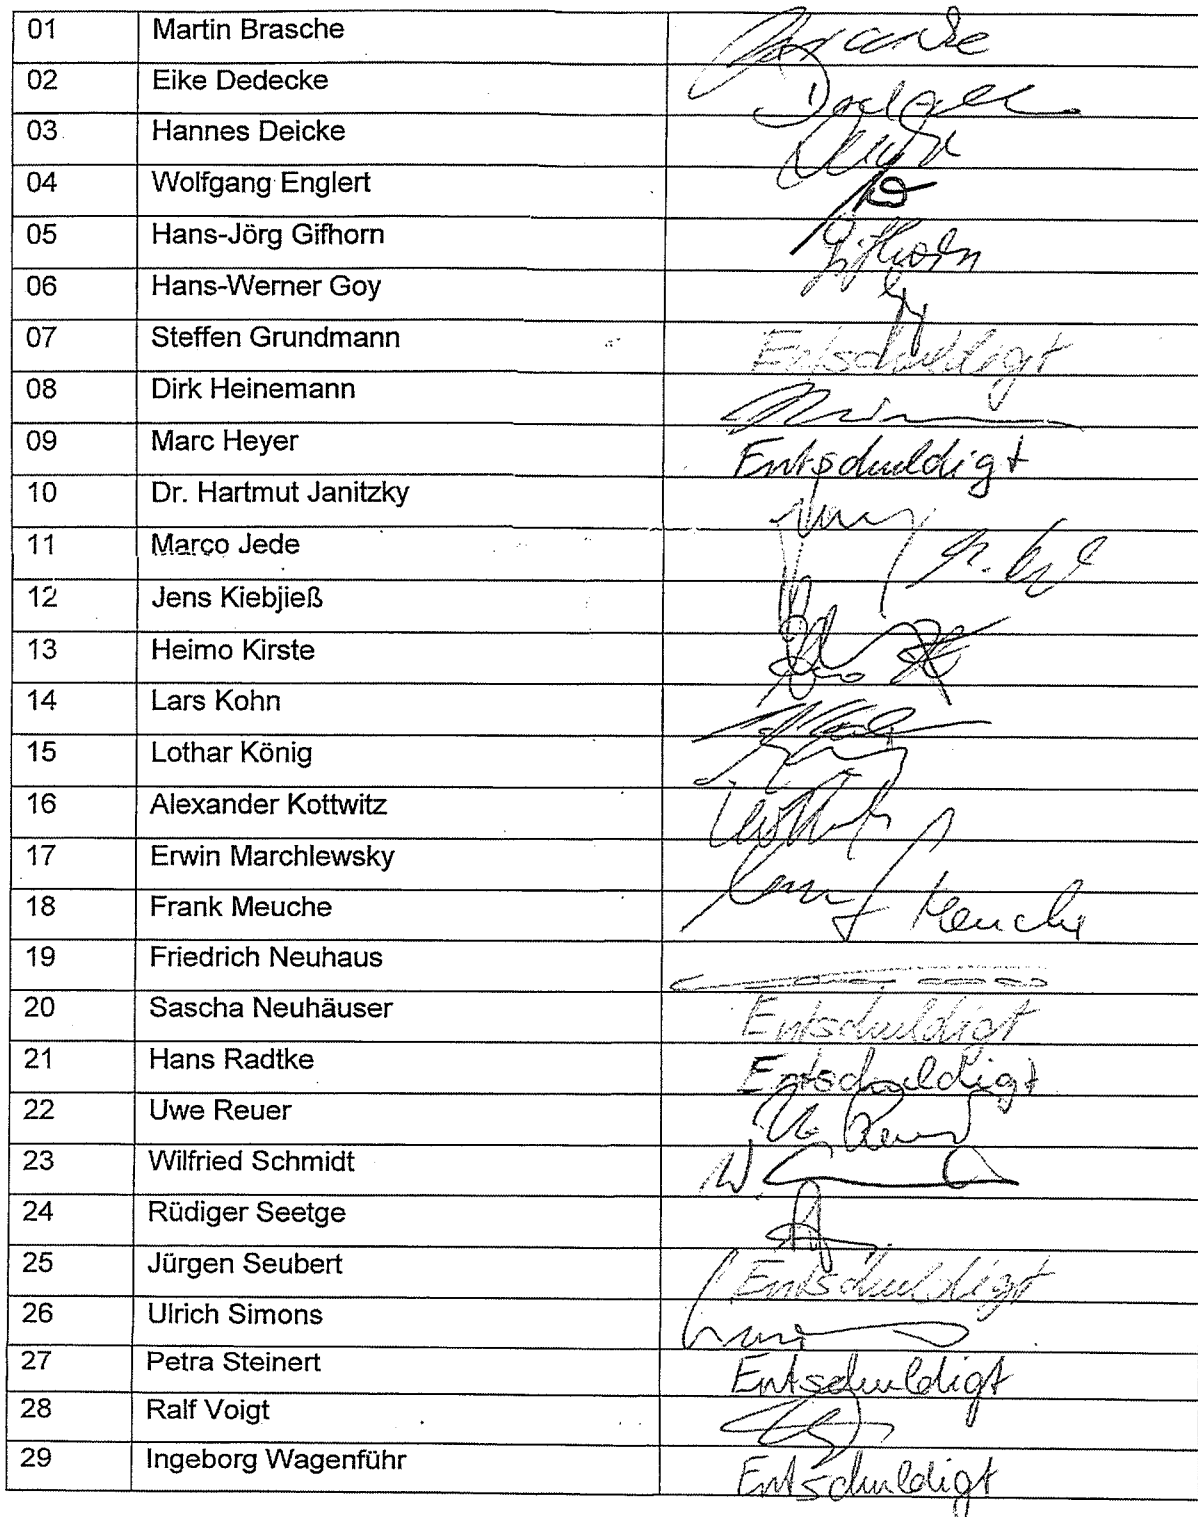 01 Martin Brasche
02 Eike Dedecke
03 Hannes Deicke
04 Wolfgang Englert
05 Hans-Jörg Gifhorn Gifhorn
06 Hans-Werner Goy
07 Steffen Grundmann Entschuldigt
08 Dirk Heinemann
09 Marc Heyer Entschuldigt
10 Dr. Hartmut Janitzky
11 Marco Jede
12 Jens Kiebjieß
13 Heimo Kirste
14 Lars Kohn
15 Lothar König
16 Alexander Kottwitz
17 Erwin Marchlewsky
18 Frank Meuche Meuche
19 Friedrich Neuhaus
20 Sascha Neuhäuser Entschuldigt
21 Hans Radtke Entschuldigt
22 Uwe Reuer
23 Wilfried Schmidt
24 Rüdiger Seetge
25 Jürgen Seubert Entschuldigt
26 Ulrich Simons
27 Petra Steinert Entschuldigt
28 Ralf Voigt
29 Ingeborg Wagenführ Entschuldigt